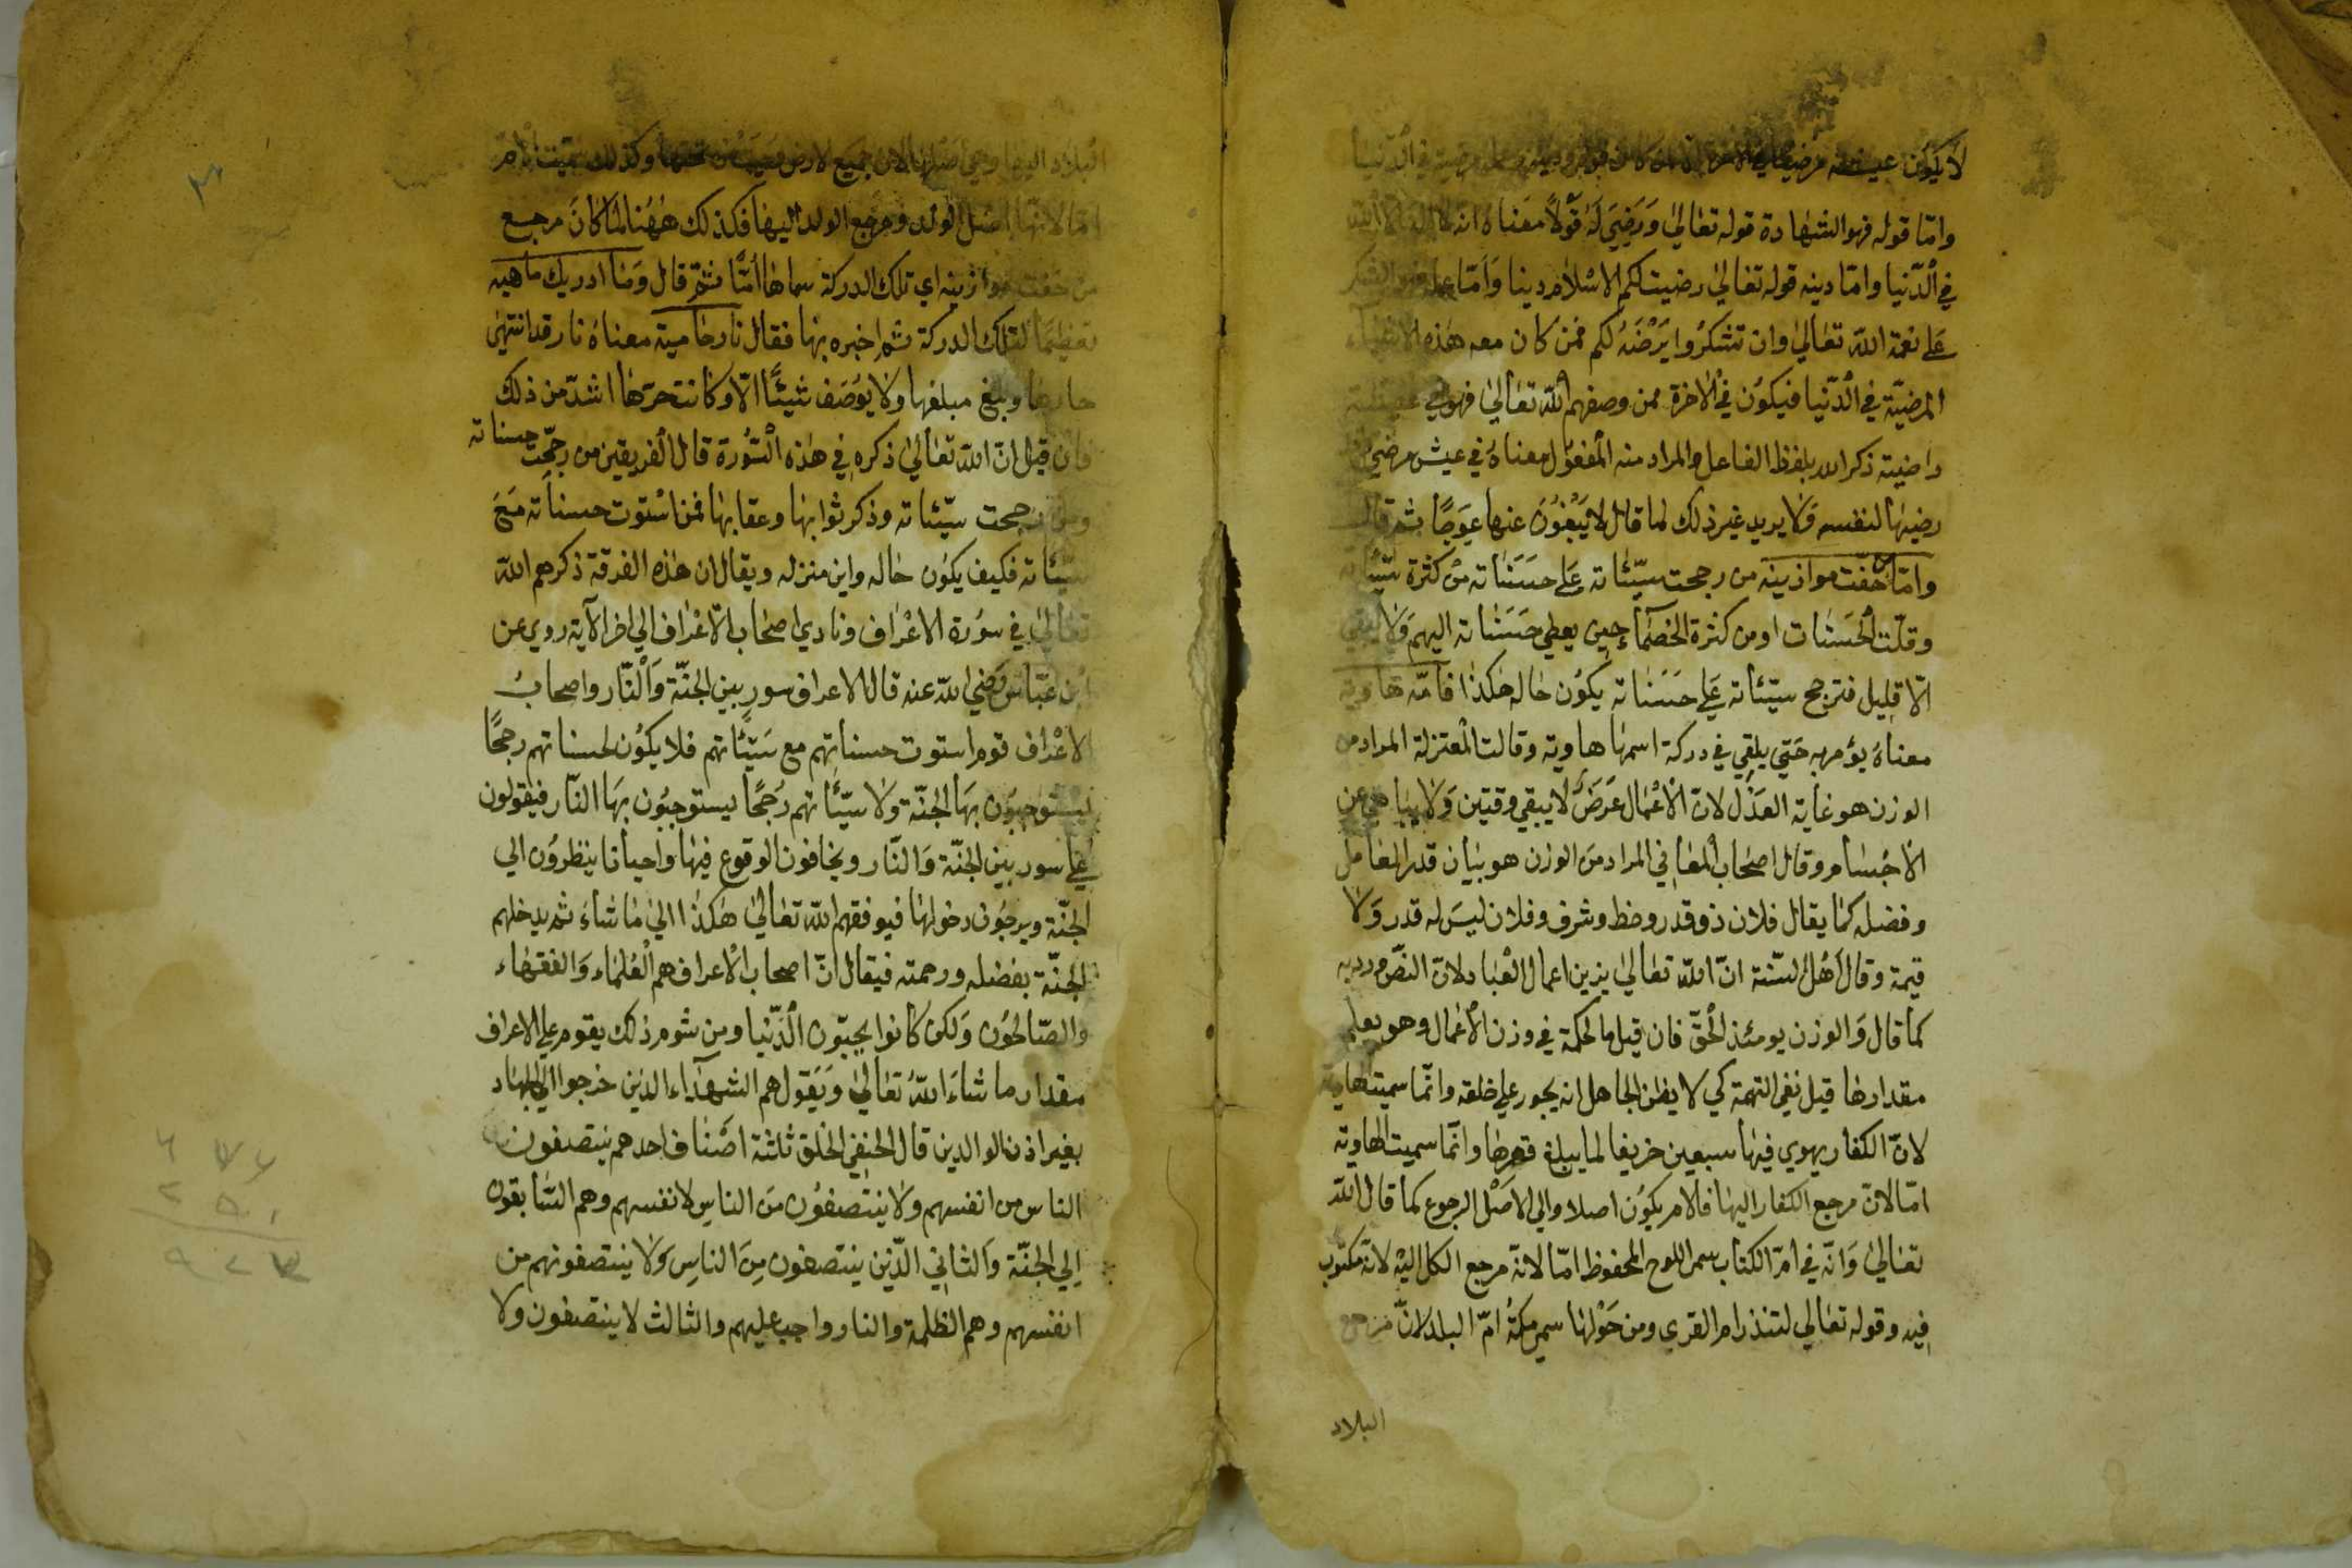 لا يكون عيشه مرضيا في الاخرة في الدنيا
واما قوله فهو الشهادة قوله تعالي وَرَضِيَ لَهُ قَوْلاً معناه انه لا اله الا الله
في الدّنيا وامّا دينه قوله تعالي رضيت لكم الاسلام دينا وَاَمّا عمله فهو الشكر
عَلي نعمة الله تعالي وان تشكرُوا يَرْضَهُ لكم فمن كان معه هذه الاشياء
المرضيّة في الدّنيا فيكوُن في الاخرة ممن وصفهم الله تعالي فهو في عيشة
راضية ذكر الله بلفظ الفاعل والمراد منه المفعوُل معناهُ في عيش مرضي
رضيها لنفسه وَلا يريد غير ذلك لما قال لا يَبْغُوُنَ عنها عِوَجًا ثم قال
وامّا من خفّت موازينه من رجحت سيّئاته عَلي حسَنَاته من كثرة سيّئاته
وقلّت الحَسَنات او من كثرة الخصمآء حين يعطي حَسَنَاته اليهم وَلا يبقي
الّا قليل فترجح سيّئاته عَلي حَسَنَاته يكوُن حاله هكذا فامّه هاوية
معناهُ يؤمر به حَتي يلقي في دركة اسمها هاوية وقالت المعتزلة المراد من
الوزن هو غاية العدْل لانّ الاعْمال عَرَضٌ لا يبقي وقتين وَلا من
الاجْسام وقال اصحاب المعاني المراد من الوزن هو بيان قدر العامل
وفضله كما يقال فلان ذو قدر وحظ وشرف وفلان ليسَ له قدر وَلا
قيمة وقال اهْل السّنة انّ الله تعالي يزين اعمال العْباد لانّ النصّ ورد به
كما قال وَالوزن يومئذ الحَقّ فان قيل ما الحكمة في وزن الاعْمال وهو يعلم
مقدارها قيل نفي التهمة كي لا يظن الجاهل انه يجور علي خلقه وانّما سميت الهاوية
لانّ الكفار يهوي فيها سبعين خريفا لما يبلغ قعرها وانّما سميت الهاوية
امّا لانّ مرجع الكفار اليها فالام يكوُن اصلا والي الاصْل الرجوع كما قال الله
تعالي وَانّه في امّ الكتاب سمي اللوح المحفوظ امّا لانّه مرجع الكل اليْه لانّه مكتوب
فيه وقوله تعالي لتنذر ام القري ومن حَوْلها سمي مكةُ امّ البلد لانّ مرجع
البلاد
البلاد اليها وهي اصلها لان جميع الارض من تحتها وكذلك سميت الام
امّا لانّها اصل الولد ومرجع الولد اليها فكذلك ههُنا لما كانَ مرجع
من خفت موازينه اي تلك الدركة سماها اُمّاً ثمّ قال وَمَا ادريك ما هيه
تعظيمًا لتلك الدركة ثم اخبره بها فقال نار حامية معناهُ نار قد انتهيٰ
حارها وبلغ مبلغها وَلا يوُصَف شيئًا الّا وكانت حرّها اشدّ من ذلك
فان قيل انّ الله تعالي ذكره في هذه السّوُرة قال الفريقين من رجّحت حسناته
ومن رجحت سيّئاته وذكر ثوابها وعقابها فمن اسْتوت حسناته مَعَ
سيّئاته فكيف يكوُن حاله واين منزله ويقال ان هذه الفرقة ذكرهم الله
تعالي في سوُرة الاعْراف ونادي اصحاب الاعْراف الي اخر الآية روي عن
ابن عَبّاس رَضي الله عنه قال الاعراف سور بين الجنّة وَالْنّار واصحابُ
الاعْراف قوم استوت حسناتهم مع سَيّئاتهم فلا يكوُن لحسناتهم رجحًا
يستوجبوُن بهَا الجنّة وَلا سيّئاتهم رُجحًا يستوجبوُن بهَا النّار فيقولون
عَلي سور بين الجنّة وَالنّار ويخافون الوقوع فيها واحيانا ينظروُن الي
الجنّة ويرجوُن دخولها فيوفقهم الله تعالي هٰكذا الي ما شاءَ ثم يدخلهم
الجنّة بفضله ورحمته فيقال انّ اصحاب الاعراف هم العُلماء وَالفقهاء
والصّالحوُن وَلكن كانوا يحبّون الدّنيا ومن شوم ذلك يقوم علي الاعراف
مقدار ما شاءَ اللهُ تعالي وَيَقول هم الشهدآء الذين خرجوا الي الجهاد
بغير اذن الوالدين قال الحنفي الخلق ثلثة اصْناف احدهم ينتصفون
الناس من انفسهم وَلا ينتصفوُن منَ الناسِ لانفسهم وهم السّابقون
اِلي الجنّة وَالثاني الّذين ينتصفون مِنَ الناسِ وَلا ينتصفونهم من
انفسهم وهم الظلمة والنار واجب عليهم والثالث لا ينتصفون ولا